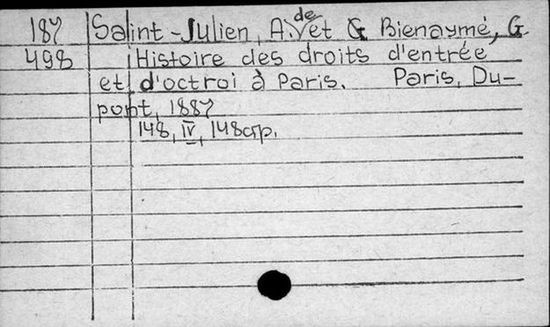 187 Saint-Julien, A. de et G. Bienaymé, G
498 Histoire des droits d'entrée
et d'octroi à Paris. Paris, Du-
pont, 1887
148, IV, 148 p.